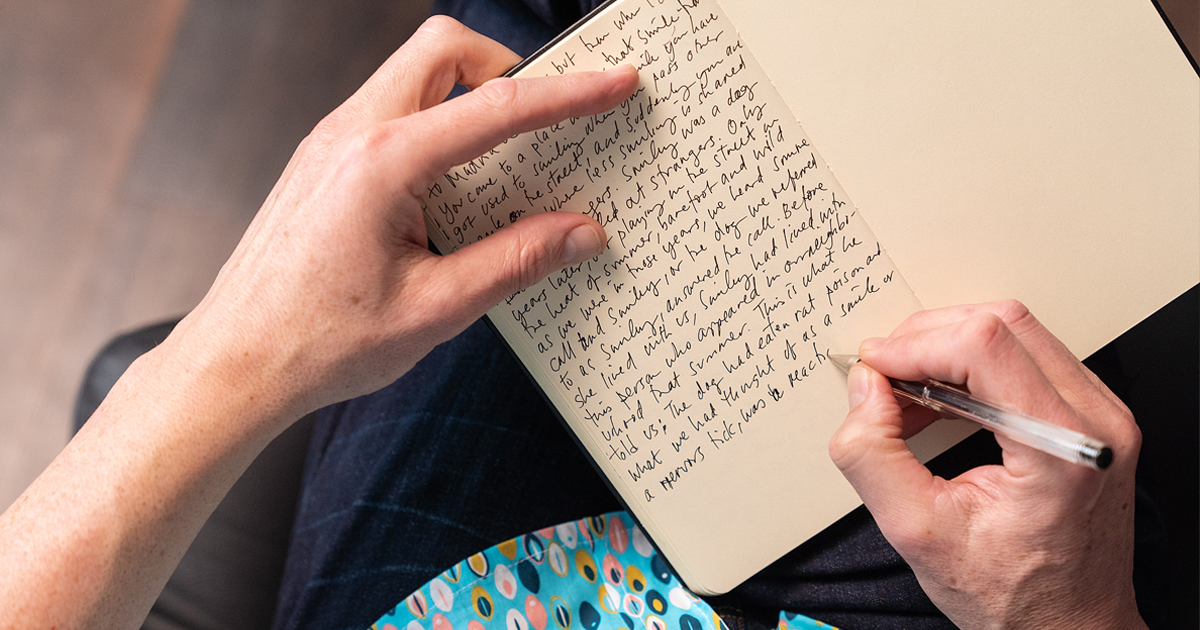 but how when
that smile
to Madrid
you come to a place smile you have
I got used to smiling when you pass other
on the street, and suddenly you are
where less smiling is shared
Smiley was a dog
at strangers. Only
years later, playing in the street in
the heat of summer, barefoot and wild
as we were in those years, we heard some
call and Smiley, or the dog we referred
to as Smiley, answered the call. Before
she lived with us, Smiley had lived with
this person who appeared in our neighbor
that summer. This is what he
told us: The dog had eaten rat poison and
what we had thought of as a smile or
a nervous tick, was a reacti